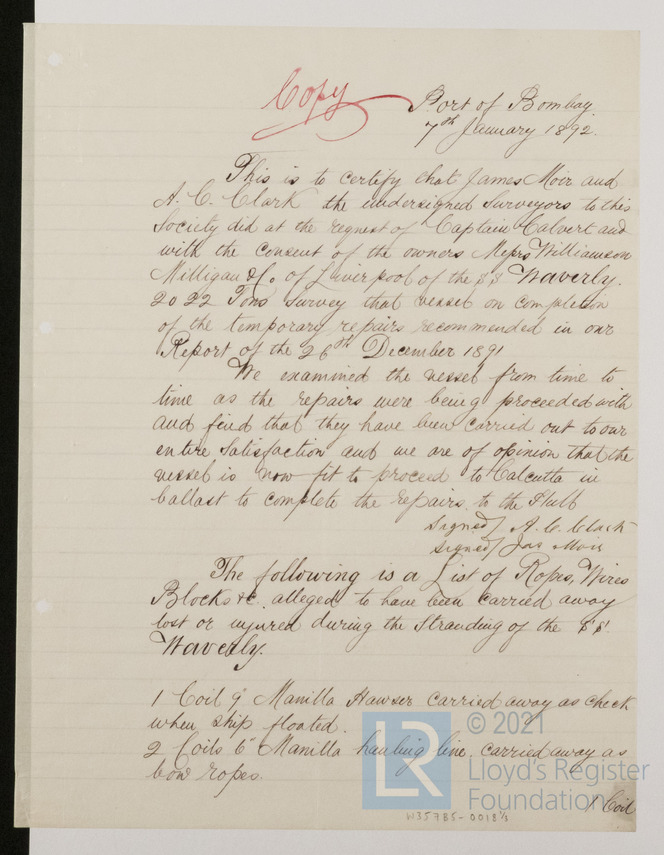 Copy
Port of Bombay
7th January 1892.
This is to certify that James Moir and
A. C. Clark the undersigned Surveyors to this
Society did at the request of Captain Calvert and
with the consent of the owners Messrs Williamson
Milligan & Co of Liverpool of the SS Waverly.
2022 Tons survey that vessel on completion
of the temporary repairs recommended in our
Report of the 26th December 1891
We examined the vessel from time to
time as the repairs were being proceeded with
and find that they have been carried out to our
entire satisfaction and we are of opinion that the
vessel is now fit to proceed to Calcutta in
ballast to complete the repairs to the Hull
Signed/ A. C. Clark
Signed/ Jas Moir
The following is a List of Ropes, Wires
Blocks &c. alleged to have been carried away
lost or injured during the Stranding of the SS.
Waverly.
1 Coil 9" Manilla Hawser carried away as check
when ship floated.
2 Coils 6" Manilla hauling line. carried away as
bow ropes.
1 Coil
LR
© 2021
Lloyd's Register
Foundation
W35785-0018 1/3